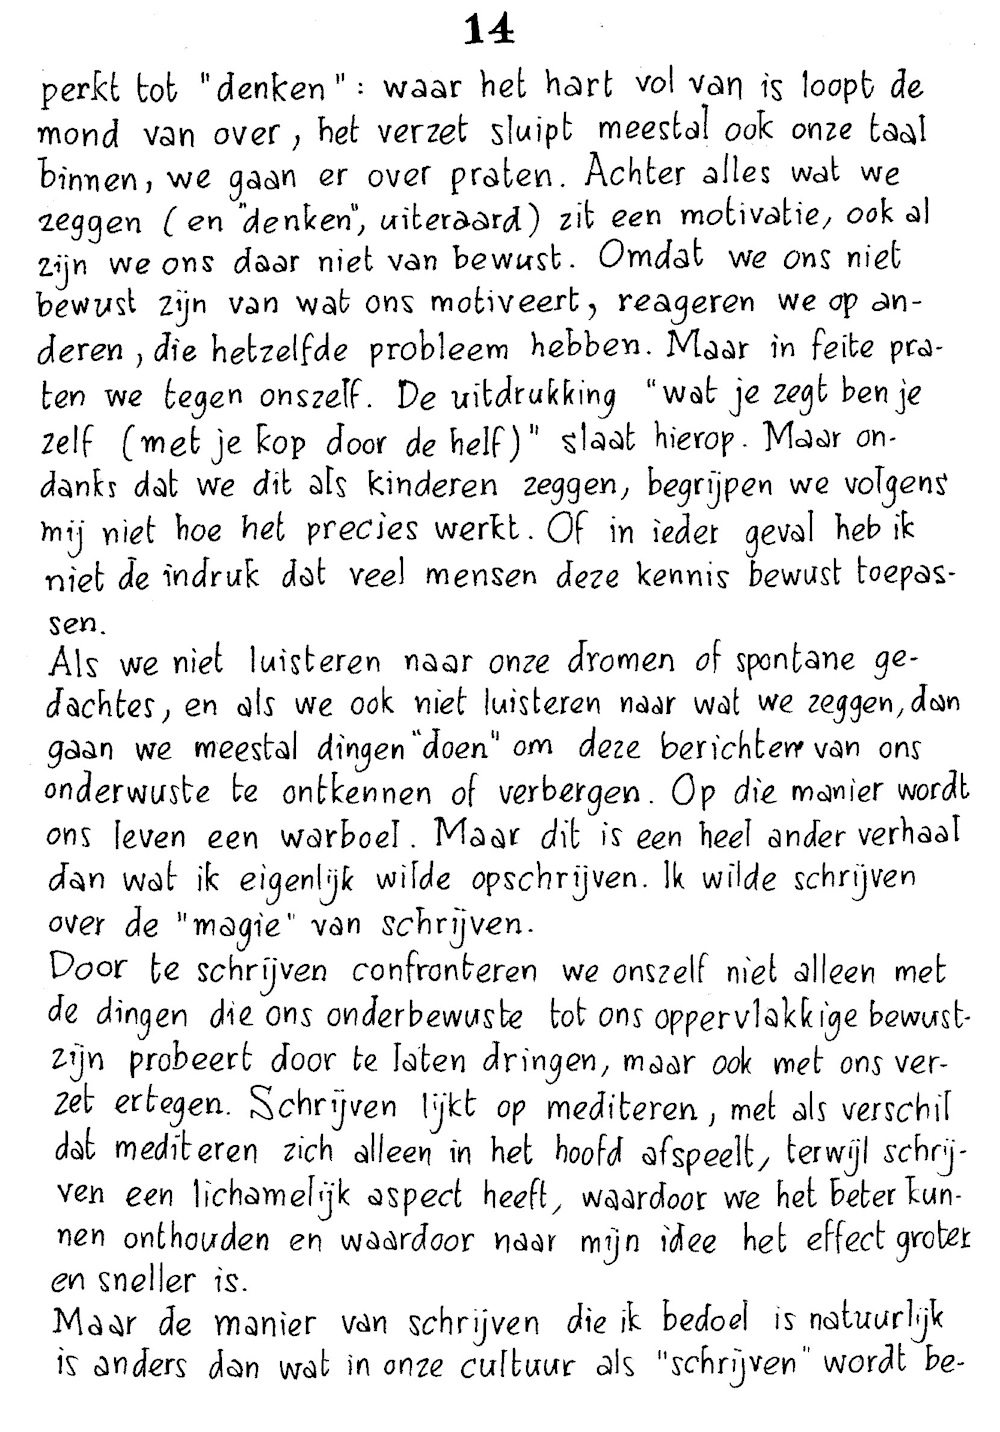 14
perkt tot "denken": waar het hart vol van is loopt de
mond van over, het verzet sluipt meestal ook onze taal
binnen, we gaan er over praten. Achter alles wat we
zeggen (en "denken", uiteraard) zit een motivatie, ook al
zijn we ons daar niet van bewust. Omdat we ons niet
bewust zijn van wat ons motiveert, reageren we op an-
deren, die hetzelfde probleem hebben. Maar in feite pra-
ten we tegen onszelf. De uitdrukking "wat je zegt ben je
zelf (met je kop door de helf)" slaat hierop. Maar on-
danks dat we dit als kinderen zeggen, begrijpen we volgens
mij niet hoe het precies werkt. Of in ieder geval heb ik
niet de indruk dat veel mensen deze kennis bewust toepas-
sen.
Als we niet luisteren naar onze dromen of spontane ge-
dachtes, en als we ook niet luisteren naar wat we zeggen, dan
gaan we meestal dingen "doen" om deze berichten van ons
onderwuste te ontkennen of verbergen. Op die manier wordt
ons leven een warboel. Maar dit is een heel ander verhaal
dan wat ik eigenlijk wilde opschrijven. Ik wilde schrijven
over de "magie" van schrijven.
Door te schrijven confronteren we onszelf niet alleen met
de dingen die ons onderbewuste tot ons oppervlakkige bewust-
zijn probeert door te laten dringen, maar ook met ons ver-
zet ertegen. Schrijven lijkt op mediteren, met als verschil
dat mediteren zich alleen in het hoofd afspeelt, terwijl schrij-
ven een lichamelijk aspect heeft, waardoor we het beter kun-
nen onthouden en waardoor naar mijn idee het effect groter
en sneller is.
Maar de manier van schrijven die ik bedoel is natuurlijk
is anders dan wat in onze cultuur als "schrijven" wordt be-